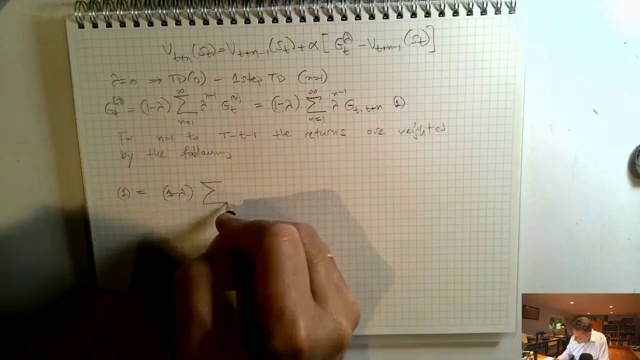 V_{t+n}(S_t) = V_{t+n-1}(S_t) + α [ G_t^λ − V_{t+n-1}(S_t) ]
λ=0 ⇒ TD(0) − 1 step TD (n=1)
G_t^{(λ)} = (1−λ) ∑_{n=1}^{∞} λ^{n-1} G_t^{(n)} = (1−λ) ∑_{n=1}^{∞} λ^{n-1} G_{t,t+n} (1)
For n=1 to T−t−1 the returns are weighted
by the following
(1) = (1−λ) ∑